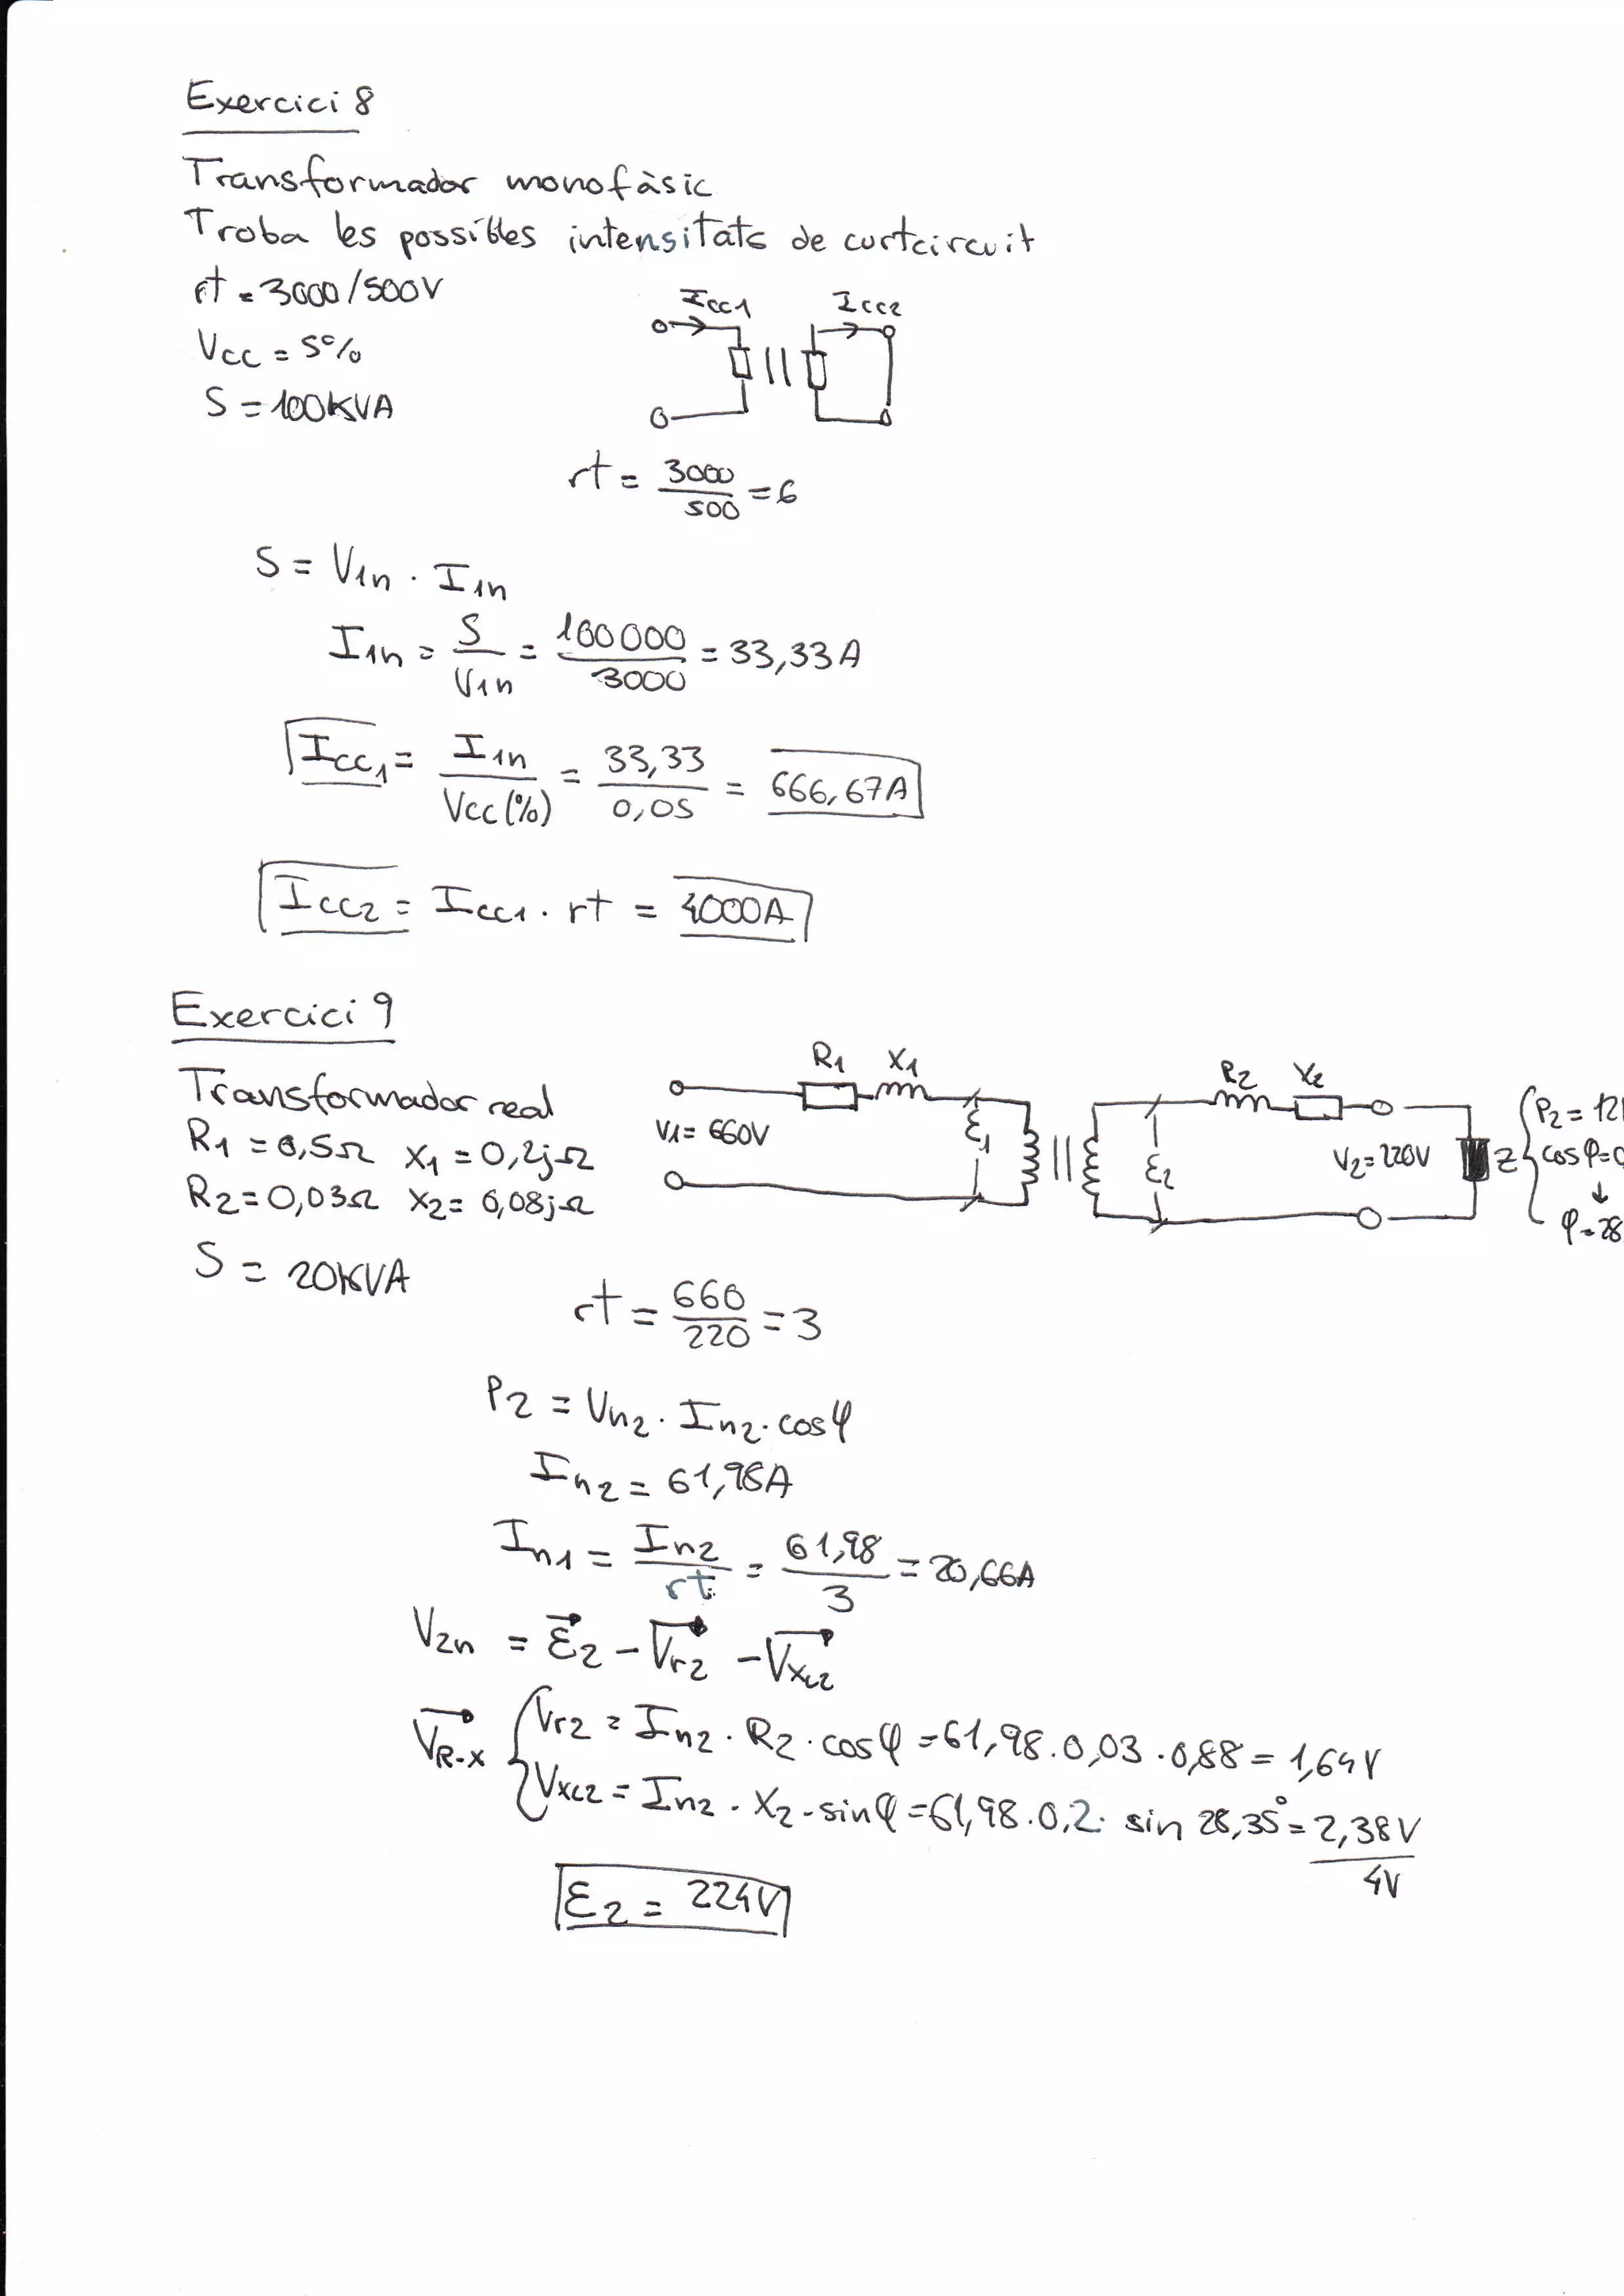 Exercici 8
Transformador monofàsic
Troba les possibles intensitats de curtcircuit
rt = 3000/500V
Icc1 Icc2
Vcc = 5%
S = 100KVA
rt = 3000/500 = 6
S = V1n · I1n
I1n = S/V1n = 100000/3000 = 33,33A
Icc1 = I1n/Vcc(%) = 33,33/0,05 = 666,67A
Icc2 = Icc1 · rt = 4000A
Exercici 9
Transformador real
R1 = 0,5Ω X1 = 0,2jΩ
R2 = 0,03Ω X2 = 0,08jΩ
S = 20KVA
R1 X1
V1 = 660V
ε1
ε2
R2 X2
V2 = 220V
Z
P2 = 12
cos φ =
↓
φ = 28
rt = 660/220 = 3
P2 = Vn2 · In2 · cos φ
In2 = 61,98A
In1 = In2/rt = 61,98/3 = 20,66A
V2n = ε2 - Vr2 - VxL2
VR-X
Vr2 = In2 · R2 · cos φ = 61,98 · 0,03 · 0,88 = 1,64V
VxL2 = In2 · X2 · sin φ = 61,98 · 0,2 · sin 28,35° = 2,38V
4V
ε2 = 224V